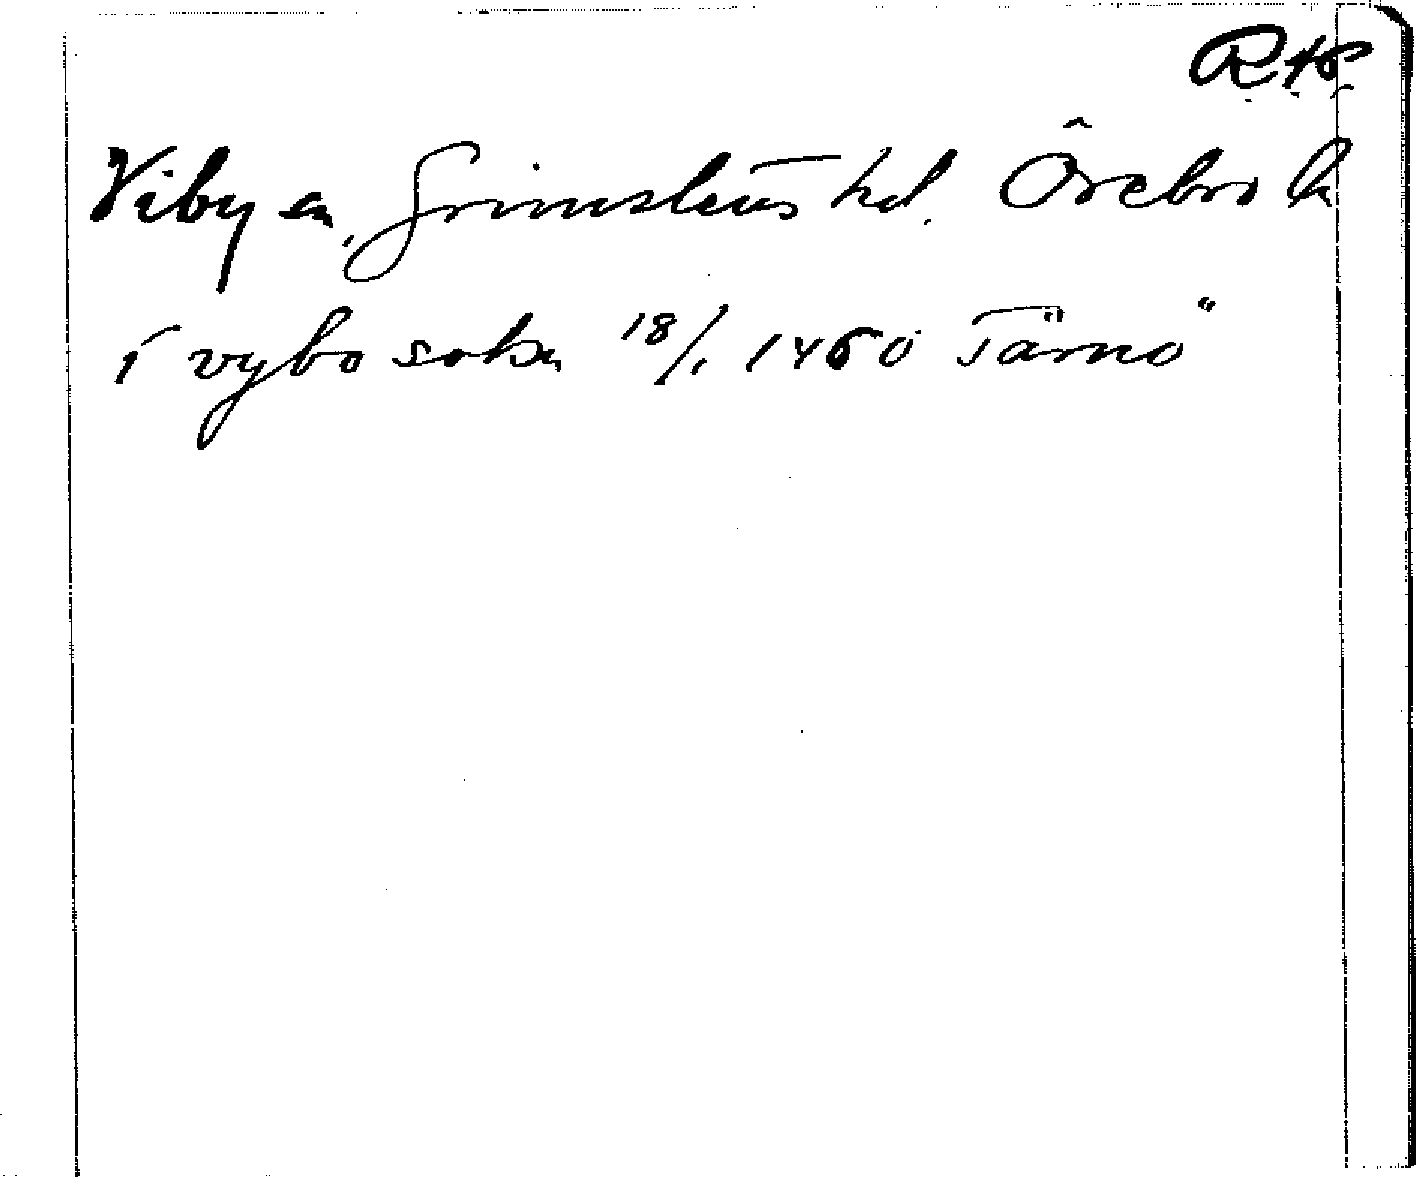 RAP.
Viby sn, Grimstens hd. Örebro l.
i vybo sokn 18/1 1460 Tärnö